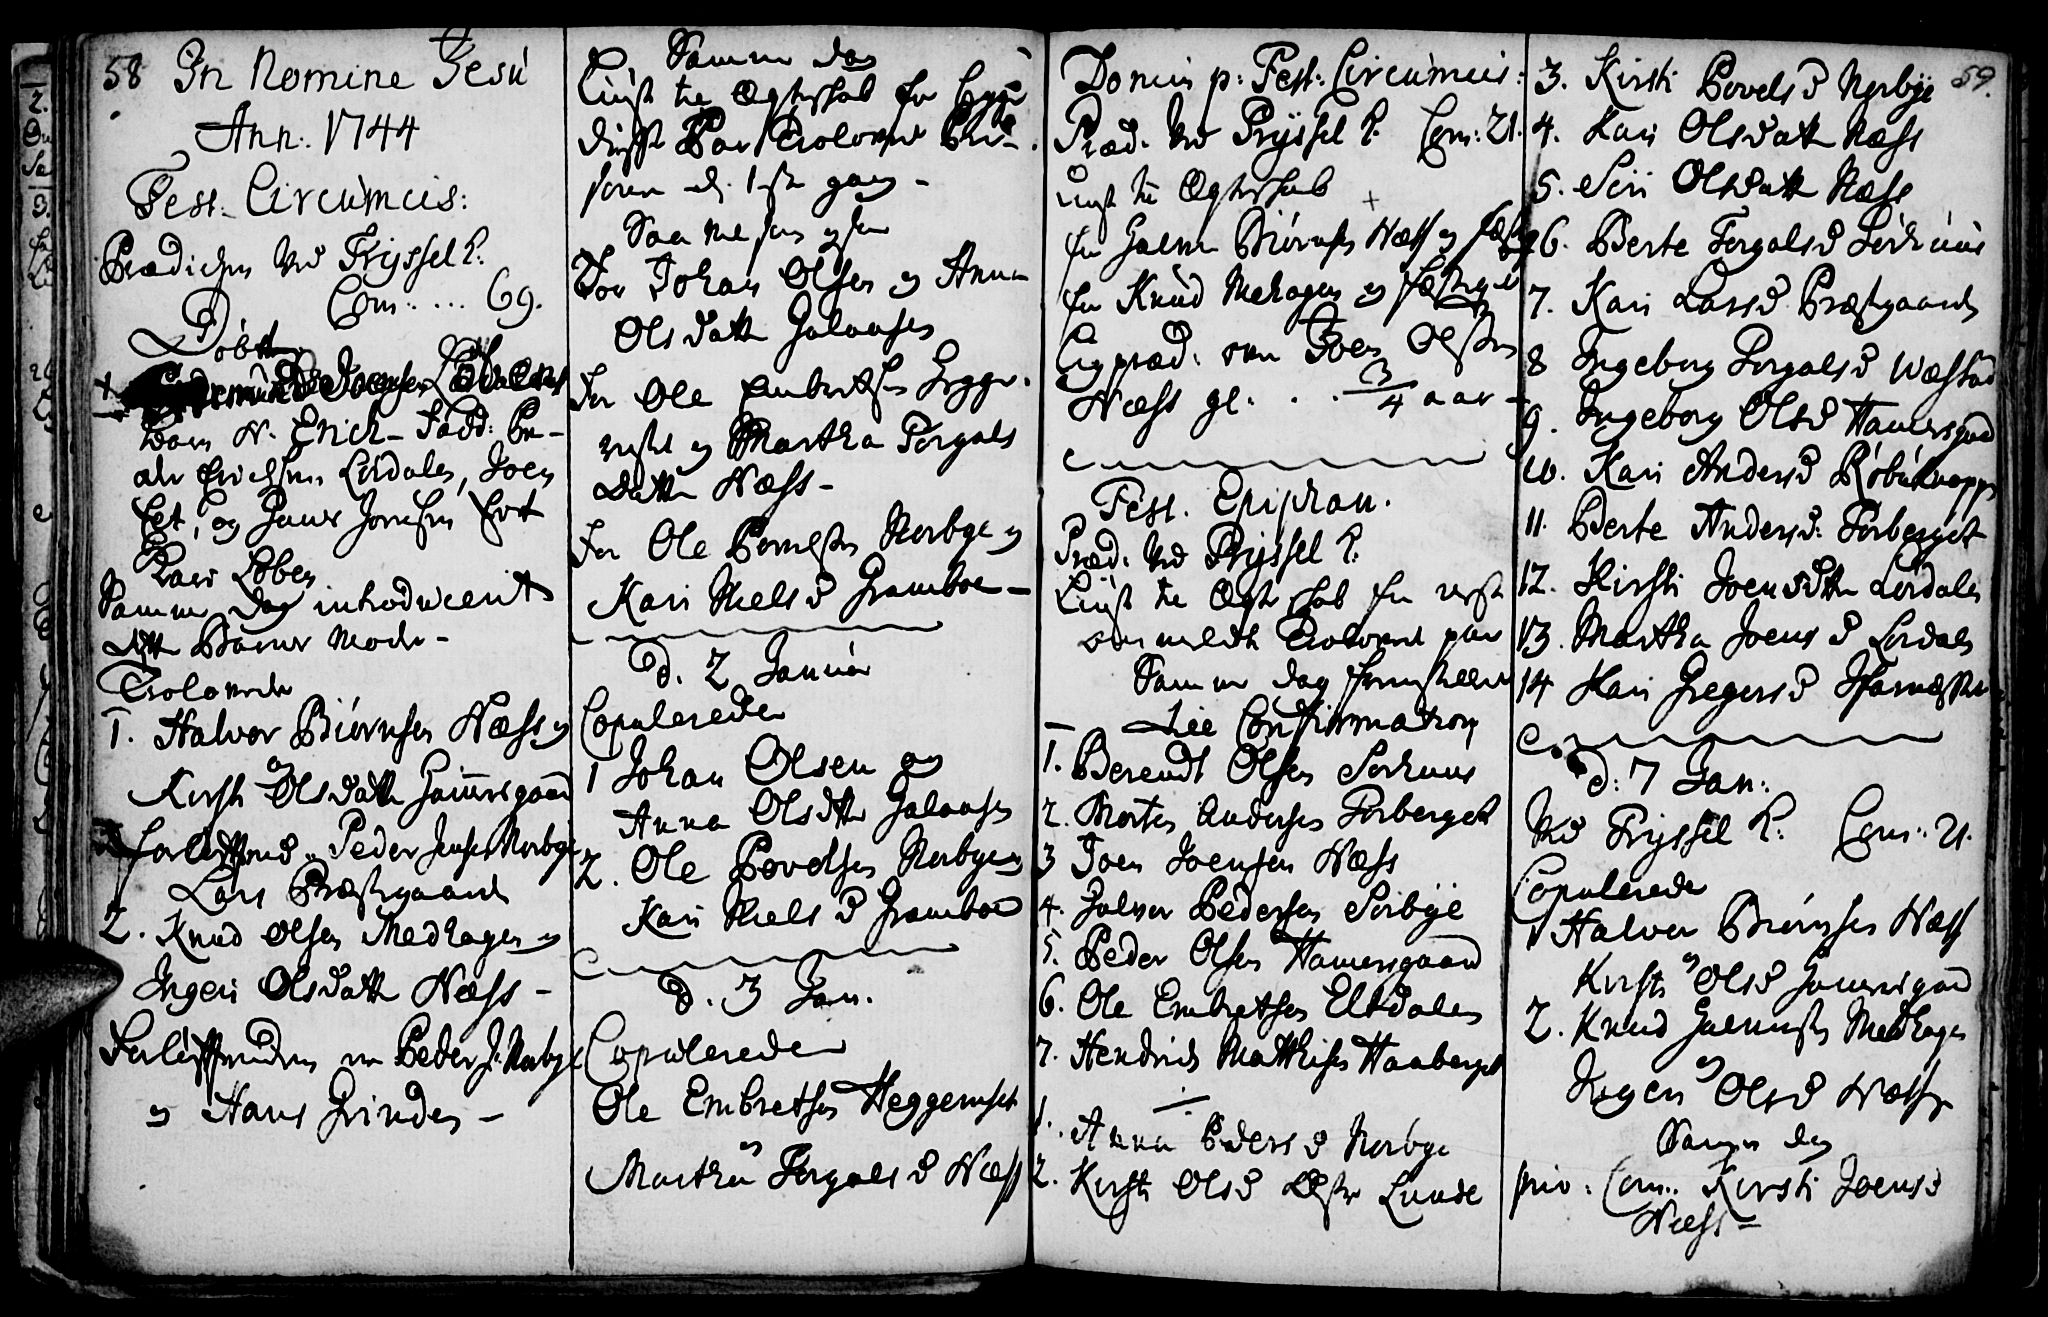 58 In Nomine Jesu
Ann. 1744
Fest. Circumcis:
Prædichen ved Tryssel K.
Com: ... 69.
Døbt
Barn N. Erich - Fadd: Pe-
der Erichsen Lørdalen, Joen
Eet, og
Kari Løben
Samme Dag introduceert
dette Barns Moder -
Trolovede
1. Halvor Biørnsen Næss og
Kirsti Olsdatt Hamersgaard
forløftsmænd Peder Jensen Norbye
Lars Præstgaard
2. Knud Olsen Medhagen og
Ingeri Olsdatt Næss -
Forløftsmænden er Peder J. Norbye
og Hans Grinden -
Samme Dag
Liust til Ægteskab for
disse Par Trolovede
d. 1ste gang -
Saa vel som ogsaa
For Johan Olsen og Anna
Olsdatt Galaasen
For Ole Embretsen Hegge-
og Martha Torgals
Datt Næss -
For Ole Povelsen Norbye og
Kari Niels D Gramboe -
d. 2 Januar
Copulerede
1 Johan Olsen og
Anna Olsdtt Galaasen
2. Ole Povelsen Norbye og
Kari Niels D Gramboe
d. 3 Jan.
Copulerede
Ole Embretsen Heggernset
og
Martha Torgals D Næss
Domin p: Fest: Circumcis:
Præd. ved Tryssel K. Com: 21.
Liust til Ægteskab
for Halvor Biørnsen Næss og
for Knud Mehagen og
Ligpræd. over Joen Olsen
Næss gl. . . . 3/4 aar -
Fest. Epiphan.
Præd. ved Tryssel K.
Liust til Ægteskab for
anmeldte Trolovede par
Samme Dag
Confirmation
1. Berendt Olsen Sørhuus
2. Morten Andersen Forberget
3 Joen Joensen Næss
4. Halvor Pedersen Sørbye
5. Peder Olsen Hamersgaard
6. Ole Embretsen Eltdalen
7. Hendrich Matthisen Haaberget
1. Anna Peders D Norbye
2. Kirsti Ols D Østre Lunde
59.
3. Kirsti Povels D Norbye
4. Kari Olsdatt Næss
5. Siri Olsdatt Næss
6. Berte Torgals D Sørhuus
7. Kari Lars D Præstgaard
8 Ingeborg Torgals D Wæstad
9. Ingeborg Ols D Hamersgaard
10. Kari Anders D Røbuknappen
11. Berte Anders D: Forberget
12. Kirsti Joensdtt Lørdalen
13. Martha Joens D Lørdalen
14 Kari Gregers D
d: 7 Jan:
ved Tryssel K: Com: 21.
Copulerede
1 Halvor Biørnsen Næss
og
Kirsti Ols D Hamersgaard
2. Knud Halvorsen Medhagen
og
Ingeri Ols D Næss
Samme dag
priv. Com: Kirsti Joens D
Næss -